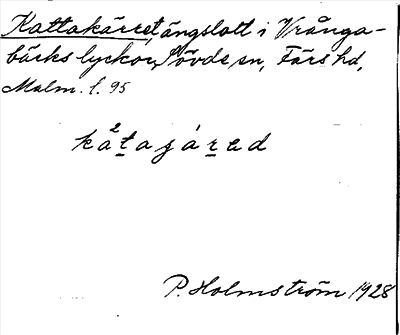 Kattakärret, ängslott i Vrånga-
bäcks lyckor, Sövde sn, Färs hd,
Malm. l. 95
ka²tajáred
P. Holmström 1928